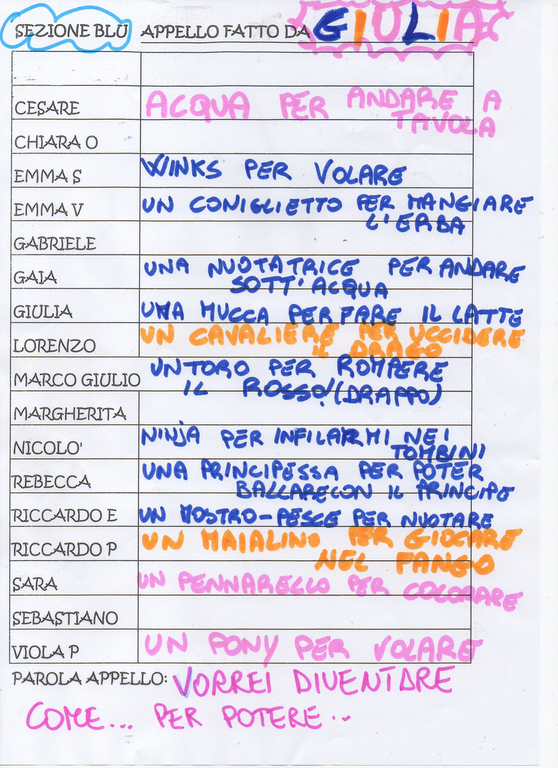 SEZIONE BLU APPELLO FATTO DA GIULIA
CESARE ACQUA PER ANDARE A
TAVOLA
CHIARA O
EMMA S WINKS PER VOLARE
EMMA V UN CONIGLIETTO PER MANGIARE
L'ERBA
GABRIELE
GAIA UNA NUOTATRICE PER ANDARE
SOTT'ACQUA
GIULIA UNA MUCCA PER FARE IL LATTE
LORENZO UN CAVALIERE PER UCCIDERE
IL DRAGO
MARCO GIULIO UN TORO PER ROMPERE
IL ROSSO! (DRAPPO)
MARGHERITA
NICOLO' NINJA PER INFILARMI NEI
TOMBINI
REBECCA UNA PRINCIPESSA PER POTER
BALLARE CON IL PRINCIPE
RICCARDO E UN MOSTRO-PESCE PER NUOTARE
RICCARDO P UN MAIALINO PER GIOCARE
NEL FANGO
SARA UN PENNARELLO PER COLORARE
SEBASTIANO
VIOLA P UN PONY PER VOLARE
PAROLA APPELLO: VORREI DIVENTARE
COME... PER POTERE..